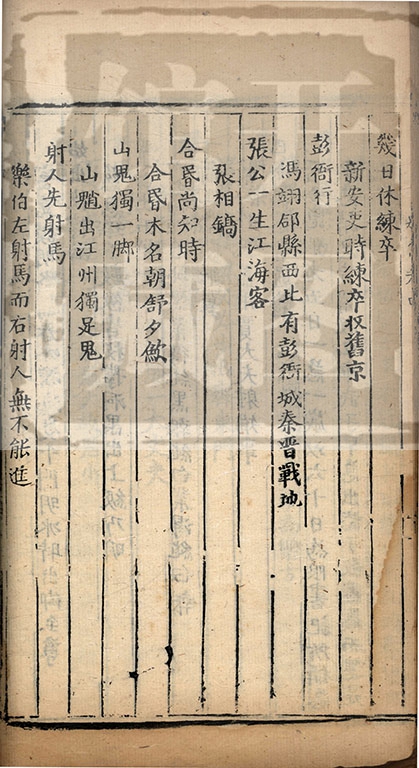 幾日休練卒
新安吏時練卒收舊京
彭衙行
馮翊郃縣西北有彭衙城秦晋戰地
張公一生江海客
張相鎬
合昬尚知時
合昬木名朝舒夕歛
山鬼獨一脚
山魈出江州獨足鬼
射人先射馬
樂伯左射馬而右射人無不能進